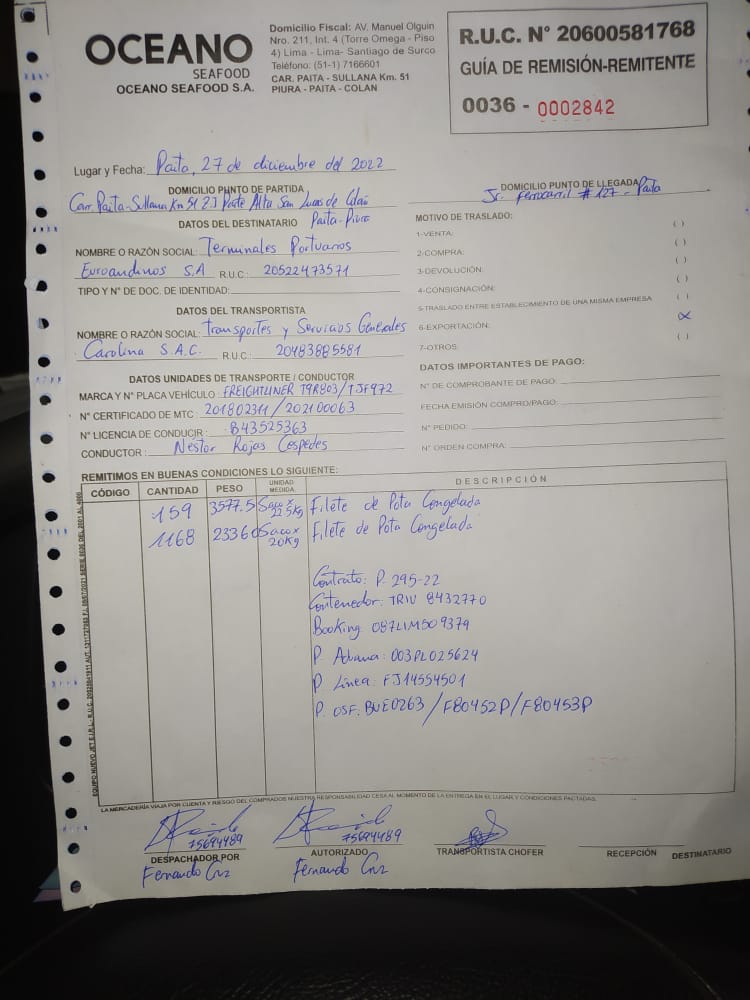 OCEANO
SEAFOOD
OCEANO SEAFOOD S.A.
Domicilio Fiscal: AV. Manuel Olguin
Nro. 211, Int. 4 (Torre Omega - Piso
4) Lima - Lima- Santiago de Surco
Teléfono: (51-1) 7166601
CAR. PAITA - SULLANA Km. 51
PIURA - PAITA - COLAN
R.U.C. N° 20600581768
GUÍA DE REMISIÓN-REMITENTE
0036 - 0002842
Lugar y Fecha: Paita, 27 de diciembre del 2022
DOMICILIO PUNTO DE PARTIDA
Carr. Paita-Sullana Km 51 ZI Parte Alta San Lucas de Colán
Paita-Piura
DOMICILIO PUNTO DE LLEGADA
Jr. Ferrocarril # 127 - Paita
DATOS DEL DESTINATARIO
NOMBRE O RAZÓN SOCIAL: Terminales Portuarios
Euroandinos S.A R.U.C: 20522473571
TIPO Y N° DE DOC. DE IDENTIDAD:
DATOS DEL TRANSPORTISTA
NOMBRE O RAZÓN SOCIAL: Transportes y Servicios Generales
Carolina S.A.C. R.U.C: 20483885581
DATOS UNIDADES DE TRANSPORTE / CONDUCTOR
MARCA Y N° PLACA VEHÍCULO : FREIGHTLINER T9R803/TJF972
N° CERTIFICADO DE MTC : 201802311/202100063
N° LICENCIA DE CONDUCIR : B43525363
CONDUCTOR : Néstor Rojas Cespedes
MOTIVO DE TRASLADO:
1-VENTA: ( )
2-COMPRA: ( )
3-DEVOLUCIÓN: ( )
4-CONSIGNACIÓN: ( )
5-TRASLADO ENTRE ESTABLECIMIENTO DE UNA MISMA EMPRESA ( )
6-EXPORTACIÓN: (X)
7-OTROS: ( )
DATOS IMPORTANTES DE PAGO:
N° DE COMPROBANTE DE PAGO:
FECHA EMISIÓN COMPRO/PAGO:
N° PEDIDO:
N° ORDEN COMPRA:
REMITIMOS EN BUENAS CONDICIONES LO SIGUIENTE:
CÓDIGO CANTIDAD PESO UNIDAD MEDIDA DESCRIPCIÓN
159 3577.5 Saco x 22.5Kg Filete de Pota Congelada
1168 23360 Saco x 20Kg Filete de Pota Congelada
Contrato: P. 295-22
Contenedor: TRIU 8432770
Booking 087LIM509379
P. Aduana: 003PL025624
P Línea: FJ14554501
P. OSF. BUE0263 / F80452P/F80453P
LA MERCADERÍA VIAJA POR CUENTA Y RIESGO DEL COMPRADOS NUESTRA RESPONSABILIDAD CESA AL MOMENTO DE LA ENTREGA EN EL LUGAR Y CONDICIONES PACTADAS.
75694489
DESPACHADOR POR
Fernando Cruz
75694489
AUTORIZADO
Fernando Cruz
TRANSPORTISTA CHOFER
RECEPCIÓN DESTINATARIO